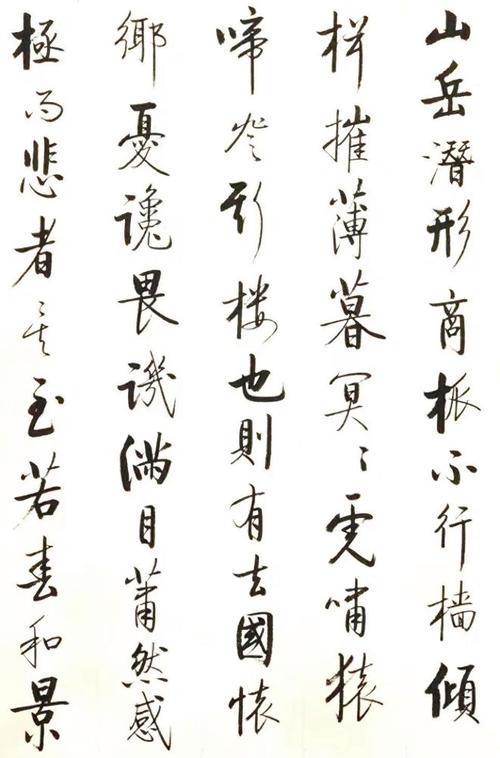 山岳潛形商旅不行檣傾
楫摧薄暮冥々虎嘯猿
啼登斯楼也則有去國懷
鄉憂讒畏譏滿目蕭然感
極而悲者矣至若春和景